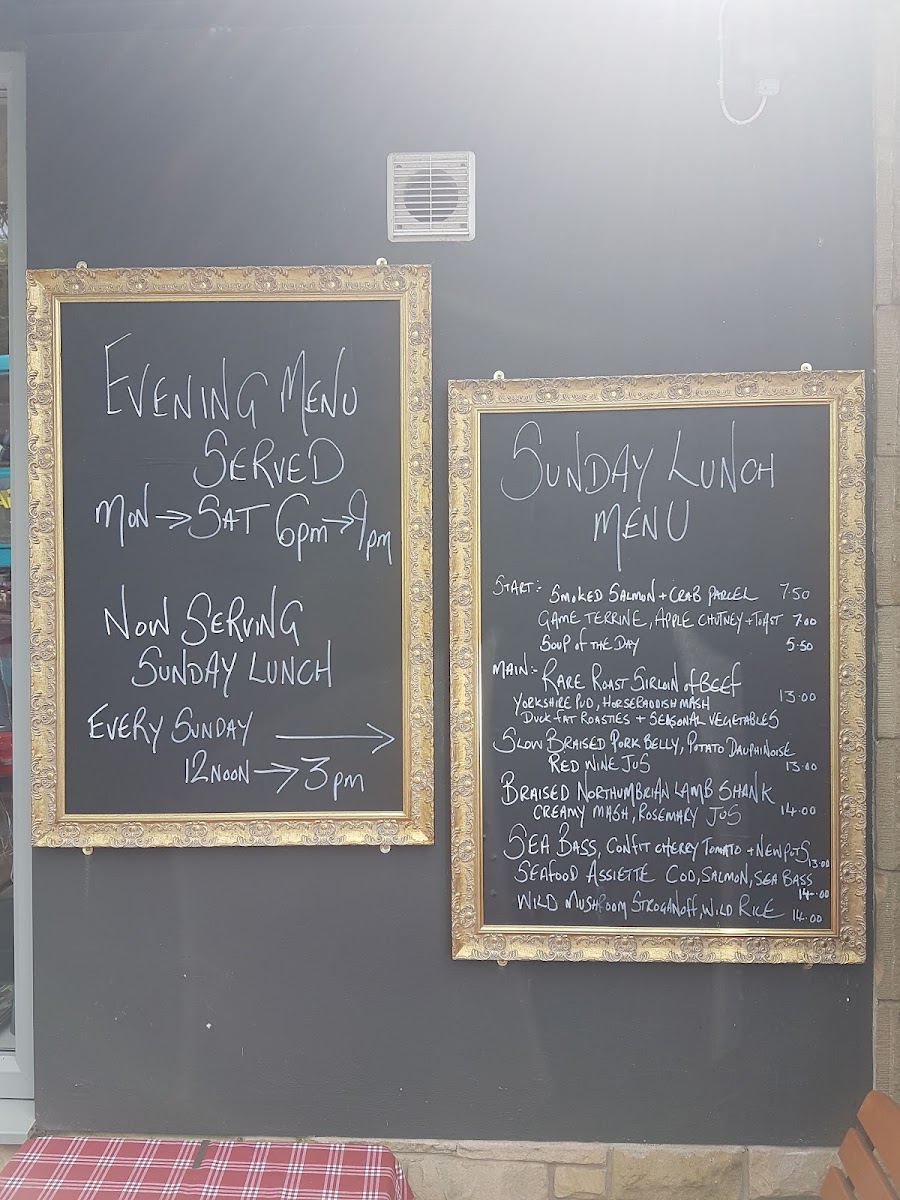 EVENING MENU
SERVED
MON → SAT 6pm → 9pm
NOW SERVING
SUNDAY LUNCH
EVERY SUNDAY →
12 NOON → 3pm
SUNDAY LUNCH
MENU
START:- SMOKED SALMON + CRAB PARCEL 7.50
GAME TERRINE, APPLE CHUTNEY + TOAST 7.00
SOUP OF THE DAY 5.50
MAIN:- RARE ROAST SIRLOIN of BEEF
YORKSHIRE PUD, HORSERADDISH MASH 13.00
DUCK FAT ROASTIES + SEASONAL VEGETABLES
SLOW BRAISED PORK BELLY, POTATO DAUPHINOISE
RED WINE JUS 13.00
BRAISED NORTHUMBRIAN LAMB SHANK
CREAMY MASH, ROSEMARY JUS 14.00
SEA BASS, CONFIT CHERRY TOMATO + NEW POTS 13.00
SEAFOOD ASSIETTE COD, SALMON, SEA BASS
14.00
WILD MUSHROOM STROGANOFF, WILD RICE 14.00